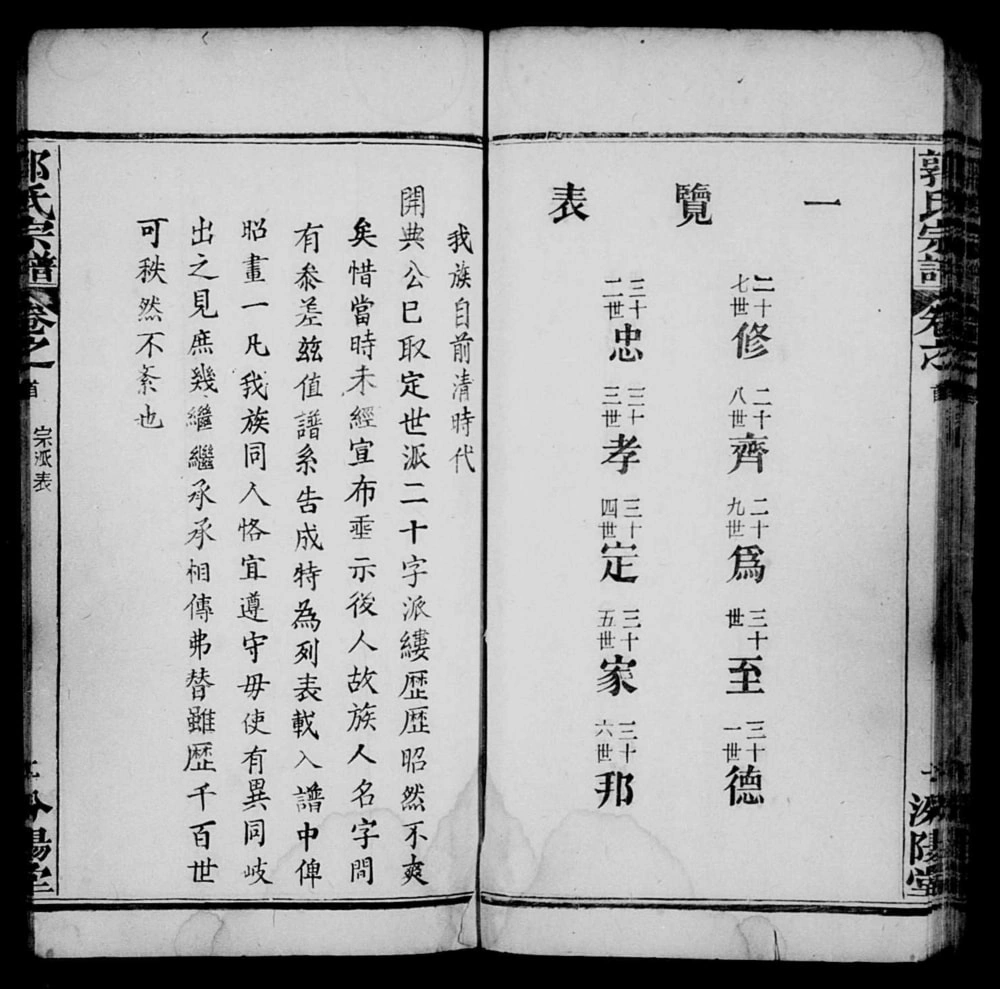 郭氏宗譜 卷之首 汾陽堂
一覽表
二十七世 修 二十八世 齊 二十九世 爲 三十世 至 三十一世 德
三十二世 忠 三十三世 孝 三十四世 定 三十五世 家 三十六世 邦
我族自前清時代
開典公巳取定世派二十字派縷歴歴昭然不爽
矣惜當時未經宣布垂示後人故族人名字間
有叅差玆值譜系告成特為列表載入譜中俾
昭畫一凡我族同人恪宜遵守毋使有異同岐
出之見庶幾繼繼承承相傳弗替雖歴千百世
可秩然不紊也
郭氏宗譜 卷之首 宗派表 汾陽堂